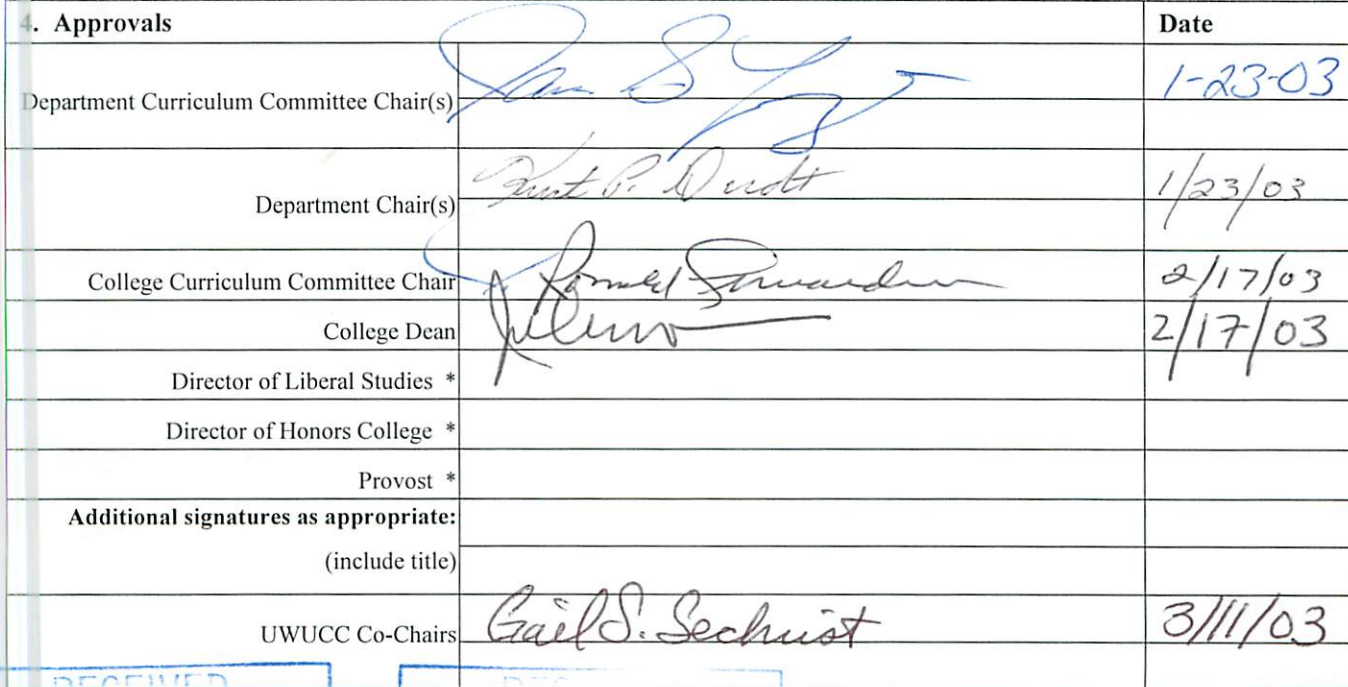 4. Approvals Date
Department Curriculum Committee Chair(s) 1-23-03
Department Chair(s) Kurt P. Dudt 1/23/03
College Curriculum Committee Chair 2/17/03
College Dean 2/17/03
Director of Liberal Studies *
Director of Honors College *
Provost *
Additional signatures as appropriate:
(include title)
UWUCC Co-Chairs Gail S. Sechrist 3/11/03
RECEIVED